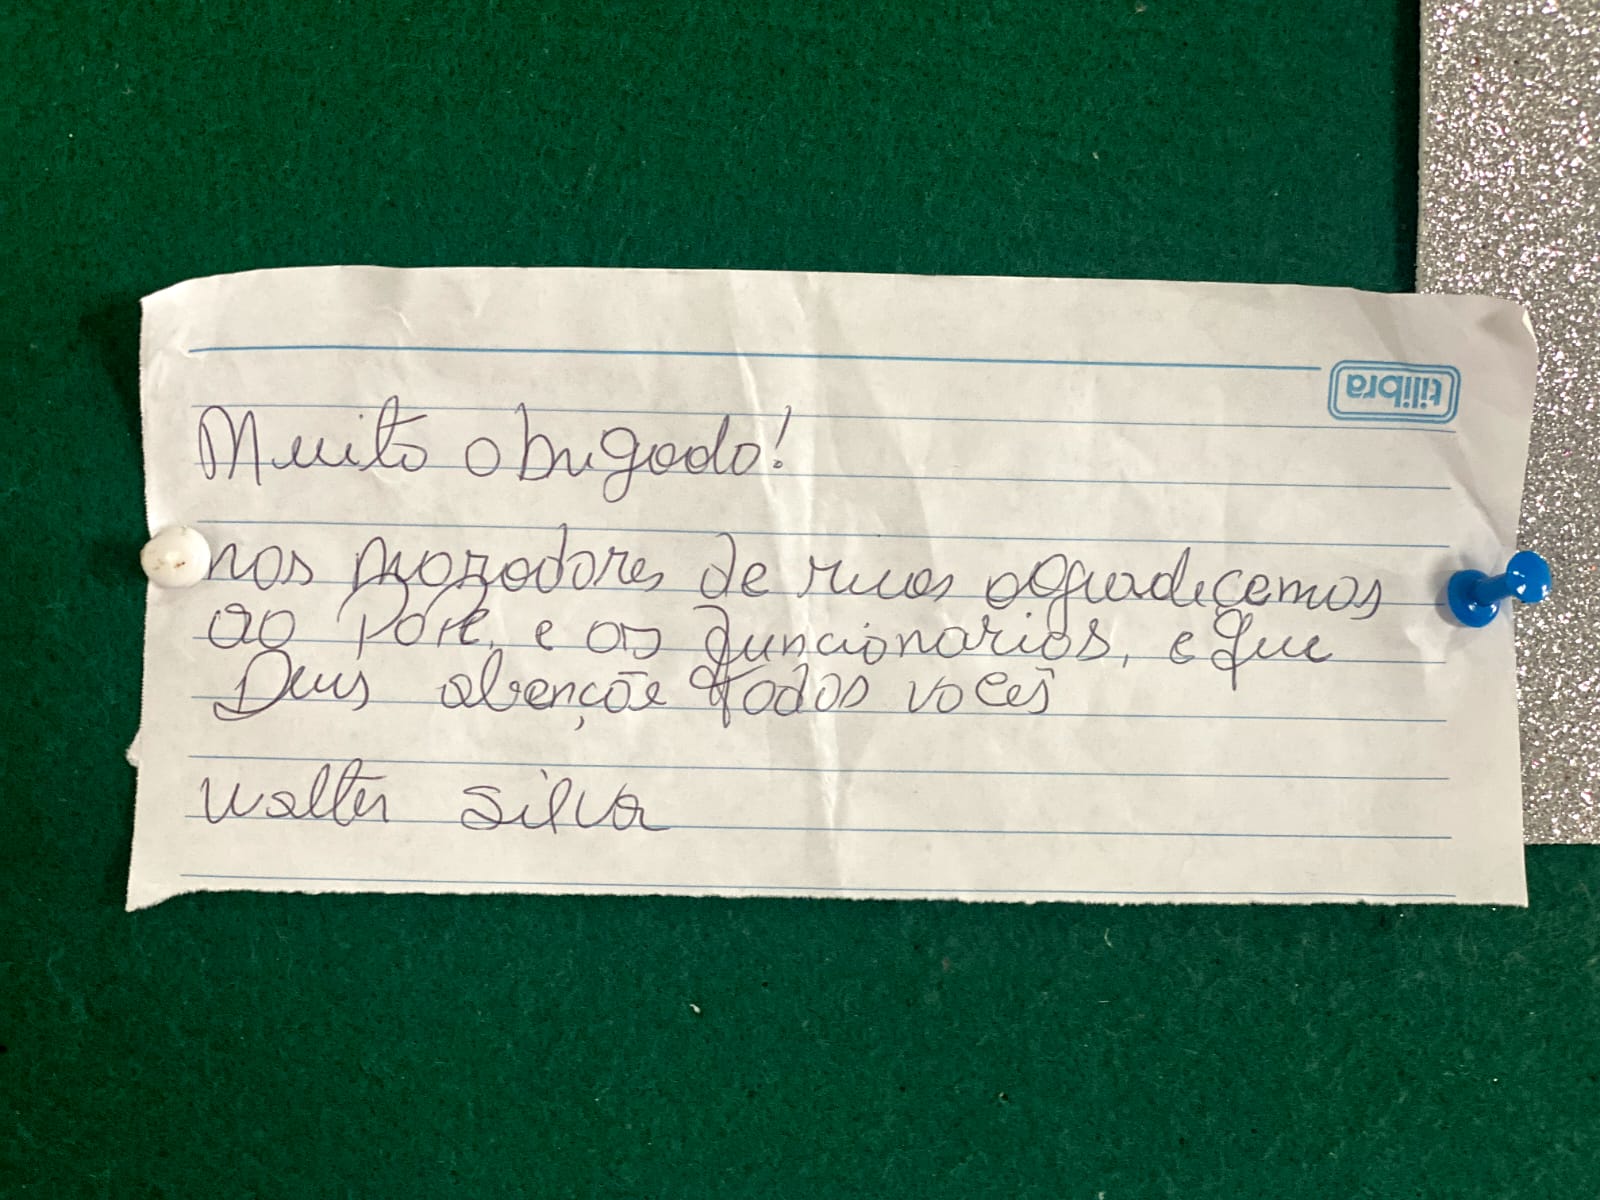 tilibra
Muito obrigado!
nos moradores de ruas agradecemos
ao Pore, e os funcionarios, e que
Deus abençõe todos vocês
Walter Silva